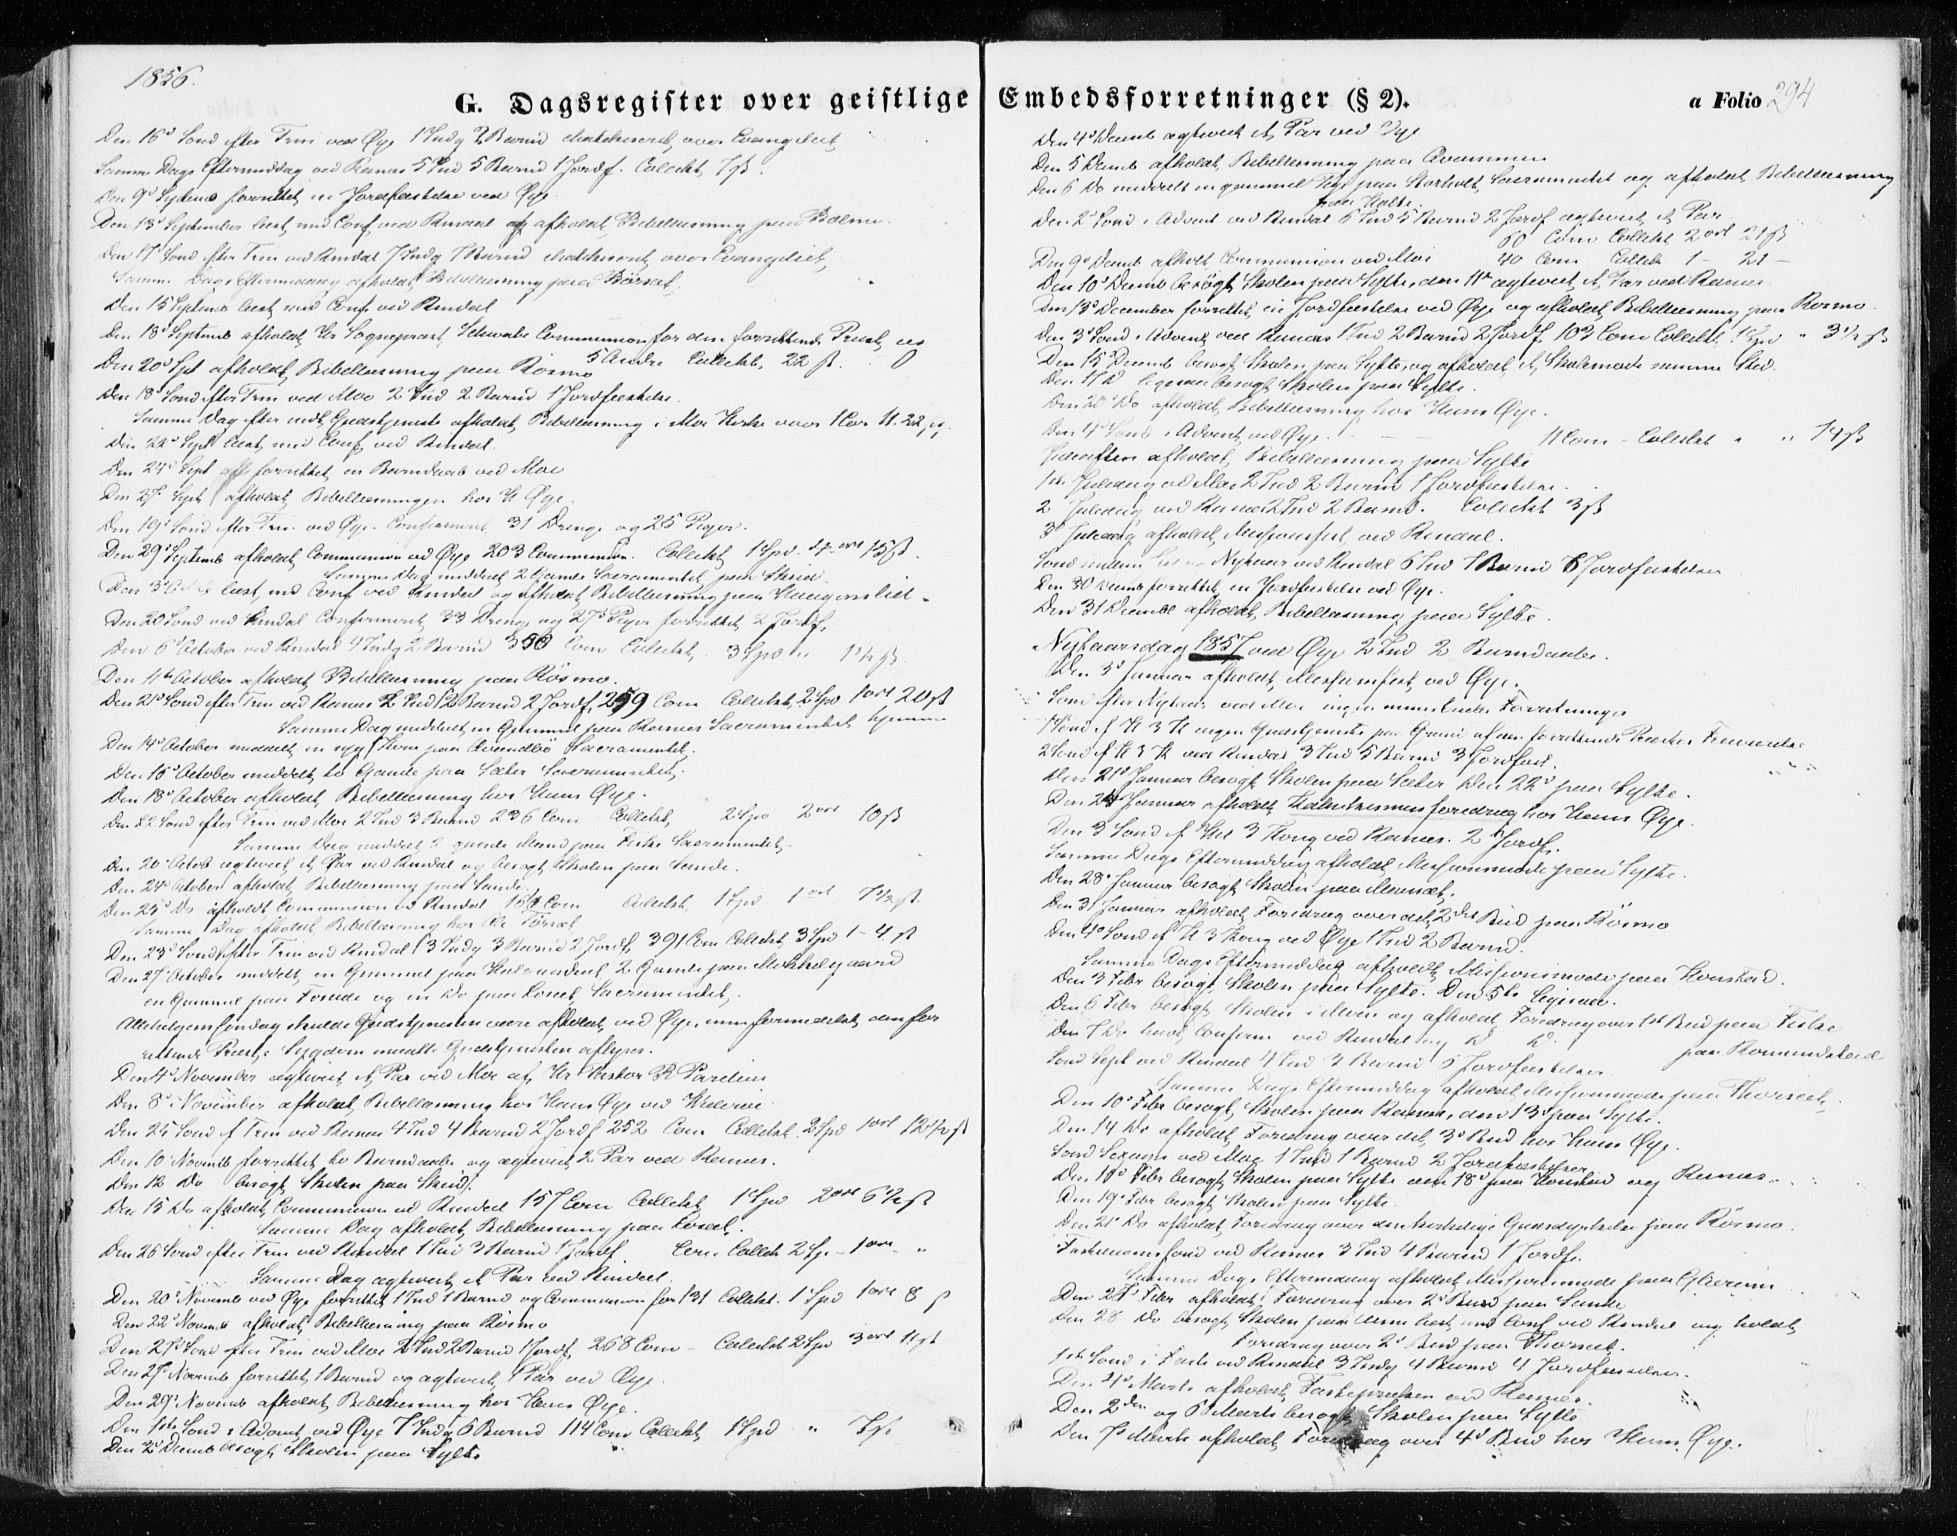 1856.
G. Dagsregister over geistlige Embedsforretninger (§ 2).
a Folio 294
Den 16d Sønd efter Trin ved Øye 1 Indg 2 Barnd chatehiseret over Evangeliet
Samme Dags Eftermiddag ved Rennes 5 Ind 5 Barnd 1 Jordf. Colecht 7 ß.
Den 9d Septemb forrettet en Jordfæstelse ved Øye
Den 13d September læst med Conf ved Rindal og afholdt Bibellæsning paa Bolme
Den 17d Sønd efter Trin ved Rindal 7 Indg 1 Barnd chatehiseret over Evangeliet
Samme Dags Eftermiddag afholdt Bibellæsning paa
Den 15 Septemb læst med Conf ved Rindal
Den 18d Septemb afholdt Hr Sogneprest Schwabe Communion for den forrettende Prest og
5 Andre Colecht 22 ß.
Den 20d Sept afholdt Bibellæsning paa Røsmo
Den 18d Sønd efter Trin ved Moe 2 Ind 2 Barnd 1 Jordfæstelse.
Samme Dag efter endt Gudstjeneste afholdt Bibellæsning i Moe Kirke over 1 Cor 11. 22 flg.
Den 22d Sept læst med Conf ved Rindal.
Den 24d Sept forrettet en Barndaab ved Moe
Den 27. Sept afholdt Bibellæsningen hos H Øye.
Den 19d Sønd efter Trin. ved Øye. Confirmeret 31 Drenge og 25 Piger.
Den 29d Septemb afholdt Communion ved Øye 203 Communion. Colecht 1 Spd. 4 ort 15 ß.
Samme Dag meddelt 2 Gamle Sacramentet paa
Den 3d læst med Conf ved Rindal og afholdt Bibellæsning paa Haugensliet.
Den 20 Sønd ved Rindal Confirmeret 33 Drenge og 27 Piger forrettet 2 Jordf.
Den 6d October ved Rindal 4 Indg 2 Barnd 350 Com Colecht 3 Spd " 1½ ß.
Den 11te October afholdt Bibellæsning paa Røsmo.
Den 21d Sønd efter Trin ved Rennes 2 Ind 2 Barnd 2 Jordf. 259 Com Colecht 2 Spd 1 ort 20 ß
Samme Dag meddelt en Gammel paa Rennes Sacramentet hjemme
Den 14d October meddelt en syg Kone paa Sacramentet.
Den 16d October meddelt to Gamle paa Sæter Sacramentet.
Den 18d October afholdt Bibellæsning hos Hans Øye.
Den 22 Sønd efter Trin ved Moe 2 Ind 3 Barnd 236 Com Colecht 2 Spd 2 ort 10 ß
Samme Dag meddelt 2 gamle Mænd paa Fiske Sacramentet.
Den 20d Octob ægteviet et Par ved Rindal og besøgt Skolen paa Sande.
Den 24d October afholdt Bibellæsning paa Sande.
Den 25d Do afholdt Communion ved Rindal Com Colecht 1 Spd 1 ort 7½ ß.
Samme Dag afholdt Bibellæsning hos
Den 23d Sønd efter Trin ved Rindal 3 Indg 3 Barnd 2 Jordf. 391 Com Colecht 3 Spd 1 - 4. ß
Den 27d October meddelt en Gammel paa 2 Gamle paa
en Gammel paa og en Do paa Sacramentet.
Allehelgensøndag skulde Gudstjenesten være afholdt ved Øye, men formedelst den for
rettende Prests Sygdom maatte Gudstjenesten aflyses.
Den 4d November ægteviet et Par ved Moe af Hr Pastor R Parelius
Den 8d November afholdt Bibellæsning hos Hans Øye ved
Den 25 Sønd f Trin ved Rennes 4 Ind 4 Barnd 2 Jordf 252 Com Colecht. 2 Spd 1 ort 12½ ß
Den 10d Novemb forrettet to Barndaabe og ægteviet 2 Par ved Rennes.
Den 12 Do besøgt Skolen paa Skeid.
Den 15 Do afholdt Communion ved Rindal 157 Com Colecht 1 Spd 2 ort 6½ ß
Samme Dag afholdt Bibellæsning paa
Den 26 Sønd efter Trin ved Rindal 1 Ind 3 Barnd 1 Jordf Com Colecht 2 Sp - 1 ort "
Samme Dag ægteviet et Par ved Rindal.
Den 20d Novemb ved Øye forrettet 1 Ind 1 Barnd og Communion for 131 Colecht. 1 Spd 1 ort 8 ß
Den 22d Novemb afholdt Bibellæsning paa Røsmo
Den 27d Sønd efter Trin ved Moe 2 Ind 2 Barnd 1 Jordf 268 Com - Colecht 2 Spd 3 ort 11 ß
Den 27d Novemb forrettet 1 Barnd og ægteviet 1 Par ved Øye.
Den 29d Novemb afholdt Bibellæsning hos Hans Øye.
Den 1ste Sønd i Advent ved Øye 7 Indg 6 Barnd 114 Com Colecht 1 Spd " 7 ß
Den 2d Decemb besøgt Skolen paa Sylte
Den 4d Decemb ægteviet et Par ved Øye
Den 5 Decemb afholdt Bibellæsning paa
Den 6 Do meddelt en gammel Pige paa Sacramentet og afholdt Bibellæsning
paa Holte.
Den 2d Sønd i Advent ved Rindal 6 Ind 5 Barnd 2 Jordf ægteviet et Par
60 Com Collekt 2 ort 21 ß
Den 9d Decemb afholdt Communion ved Moe 40 Com Collekt 1 - 21 -
Den 10d Decemb besøgt Skolen paa Sylte, den 11te ægteviet et Par ved Rennes
Den 13d December forrettet en Jordfæstelse ved Øye og afholdt Bibellæsning paa Røsmo.
Den 3d Sønd i Advent ved Rennes 1 Ind 2 Barnd 2 Jordf 103 Com Colecht 1 Spd " 3½ ß
Den 15d Decemb besøgt Skolen paa Sylte, og afholdt et Skolemøde samme Sted.
Den 17d ligesaa besøgt Skolen paa Sylte.
Den 20d Do afholdt Bibellæsning hos Hans Øye.
Den 4d Sønd i Advent ved Øye. - - 11 Com - Colecht " " 14 ß
Juleaften afholdt Bibellæsning paa Sylte
1ste Juledag ved Moe 2 Ind 2 Barnd 1 Jordfæstelse.
2 Juledag ved Rennes 2 Ind 2 Barnd. Colecht 3 ß
3d Juledag afholdt Missionsfest ved Rindal.
Sønd mellem Jul og Nytaar ved Rindal 6 Ind 7 Barnd 6 Jordfæstelser
Den 30 Decemb forrettet en Jordfæstelse ved Øye.
Den 31 Decemb afholdt Bibellæsning paa Sylte.
Nytaarsdag 1857 ved Øye 2 Ind 2 Barndaabe.
Den 5d Januar afholdt Missionsfest ved Øye.
Sønd efter Nytaar ved Moe ingen Forretninger
1 Sønd f H 3 K ingen Gudstjeneste paa Grund af den forrettende Præstes
2 Sønd f H 3 K ved Rindal 3 Ind 5 Barnd 3 Jordfæst.
Den 21d Januar besøgt Skolen paa Sæter Den 22d paa Sylte.
Den 24 Januar afholdt Katechismusforedrag hos Hans Øye.
Den 3 Sønd f Hel 3 Kong ved Rennes. 2 Jordf.
Samme Dags Eftermiddag afholdt Missionsmøde paa Sylte.
Den 28d Januar besøgt Skolen paa
Den 31 Januar afholdt Foredrag over det 2det Bud paa Røsmo
Den 4d Sønd f H 3 Kong ved Øye 1 Ind 2 Barnd.
Samme Dags Eftermiddag afholdt Missionsmøde paa
Den 3 Febr besøgt Skolen paa Sylte. Den 5te ligesaa.
Den 6 Febr besøgt Skolen i Moen og afholdt Foredrag over 1ste Bud paa Fiske
Den 7 Do havt Confirm ved Rindal og D D. paa Romundstad
Sønd Sept ved Rindal 4 Ind 3 Barnd 6 Jordfæstelser
Samme Dags Eftermiddag afholdt Missionsmøde paa
Den 10d Febr besøgt Skolen paa Rennes, den 13d paa Sylte.
Den 14 Do afholdt Foredrag over det 3d Bud hos Hans Øye.
Sønd Sexages ved Moe 1 Ind 1 Barnd 2 Jordfæstelser
Den Febr besøgt Skolen paa Sylte den 18d paa og Rennes..
Den 19d Febr besøgt Skolen paa Sylte.
Den 21d Do afholdt Foredrag over den Gudsdyrkelse paa Røsmo.
Fastelavnssønd ved Rennes 3 Ind 4 Barnd 1 Jordf.
Samme Dags Eftermiddag afholdt Missionsmøde paa
Den 27d Febr afholdt Foredrag over 2d Bud paa Sande
Den 28 Do besøgt Skolen paa læst med Conf ved Rindal og holdt
Foredrag over 2d Bud paa
1ste Sønd i Faste ved Rindal 3 Indg 4 Barnd 4 Jordfæstelser.
Den 4d Marts afholdt Fasteprædiken ved Rennes.
Den 2den og 6 Marts besøgt Skolen paa Sylte
Den 7d Marts afholdt Foredrag over 4d Bud hos Hans Øye.